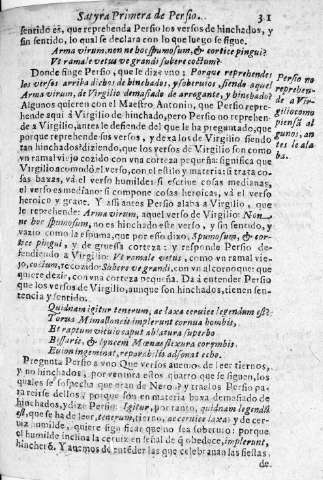 Satyra Primera de Persio. 31
sentido es, que reprehenda Persio los versos de hinchados, y
sin sentido, lo qual se declara con lo que luego se sigue.
Arma virum, nonne hoc spumosum, & cortice pingui?
Vt ramale vetus ve grandi subere coctum?
Donde finge Persio, que le dize vno; Porque reprehendes
los versos arriba dichos de hinchados, y soberuios siendo aquel
Arma virum, de Virgilio demasiado de arrogante, y hinchado?
Algunos quieren con el Maestro Antonio, que Persio repre-
hende aqui á Virgilio de hinchado, pero Persio no reprehen-
de a Virgilio, antes le defiende del que le ha preguntado, que
porque reprehende sus versos, y dexa los de Virgilio siendo
tan hinchados? diziendo, que los versos de Virgilio son como
vn ramal viejo cozido con vna corteza pequeña: significa que
Virgilio acomodó el verso, con el estilo y materia: si trata co-
sas baxas, vá el verso humilde: si escriue cosas medianas,
el verso es mediano: si compone cosas heroicas, vá el verso
heroico y graue. Y assi antes Persio alaba a Virgilio, que
le reprehende: Arma virum, aquel verso de Virgilio: Non-
ne hoc spumosum, no es hinchado este verso, y sin sentido, y
vazio como la espuma, que por esso dixo, Spumosum, & cor-
tice pingui, y de gruessa corteza: y responde Persio de-
fendiendo a Virgilio: Vt ramale vetus, como vn ramal vie-
jo, coctum, recozido: Subere ve grandi, con vn alcornoque: que
quiere dezir, con vna corteza pequeña. Da á entender Persio
que los versos de Virgilio, aunque son hinchados, tienen sen-
tencia y sentido.
Quidnam igitur tenerum, ac laxa ceruice legendum est?
Torua Mimalloneis implerunt cornua bombis,
Et raptum vitulo caput ablatura superbo
Bassaris, & lyncem Mœnas flexura corymbis.
Euion ingeminat, reparabilis adsonat echo.
Pregunta Persio a vno Que versos auemos de leer tiernos,
y no hinchados, por ventura estos quatro que se siguen, los
quales se sospecha que eran de Neron? y traelos Persio pa-
ra reirse dellos, porque son en materia baxa demasiado de
hinchados, y dize Persio: Igitur, por tanto, quidnam legendũ
est, que se ha de leer, tenerum, tierno, ac ceruice laxa, y de cer-
uiz humilde, quiere sigñificar que no sea soberuio: porque
el humilde inclina la ceruiz en señal de q̃ obedece, implerunt,
hincheró. Y auemos de entẽder las que celebrauan las fiestas
de.
Persio no
reprehen-
de a Vir-
gilio como
piensã al
gunos, an
tes le ala
ba.